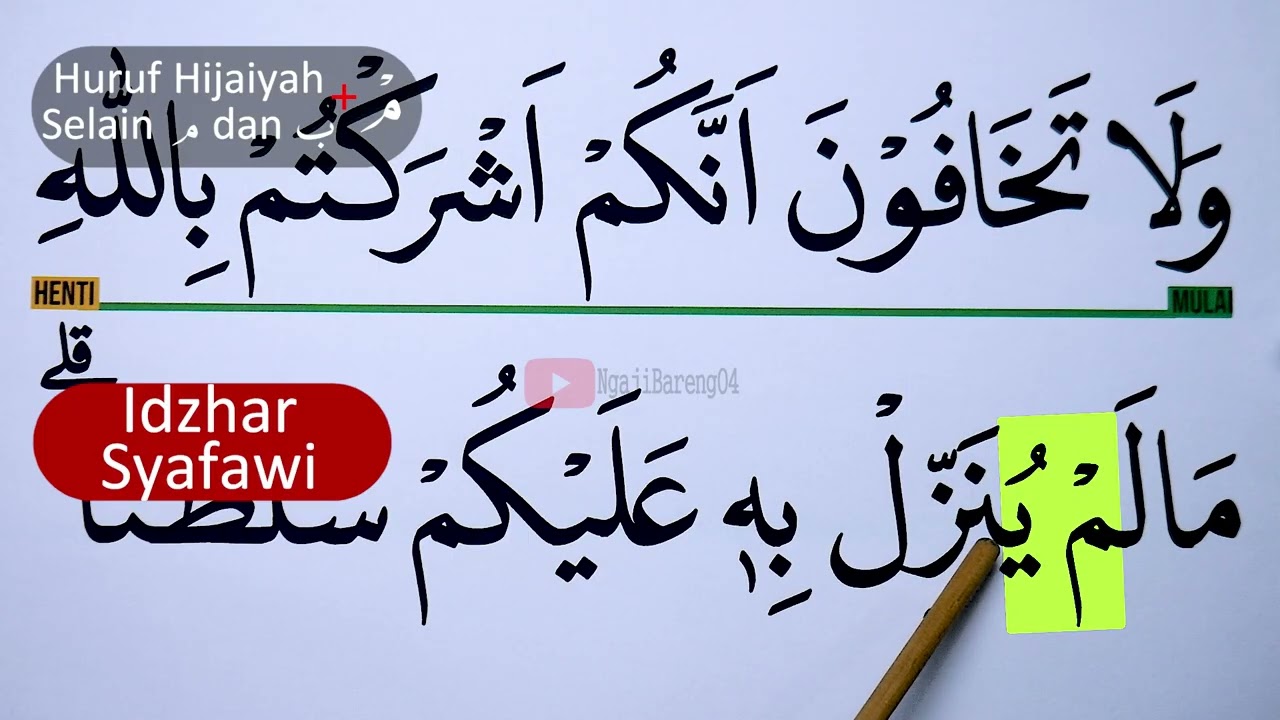 Huruf Hijaiyah + مْ
Selain م dan ب
وَلَا تَخَافُوْنَ اَنَّكُمْ اَشْرَكْتُمْ بِاللّٰهِ
HENTI MULAI
قلے
NgajiBareng04
Idzhar
Syafawi
مَا لَمْ يُنَزِّلْ بِهٖ عَلَيْكُمْ سُلْطٰنًا